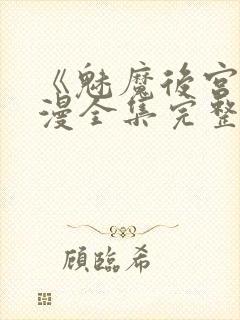 《魅魔後宮
漫全集完整
顧臨希